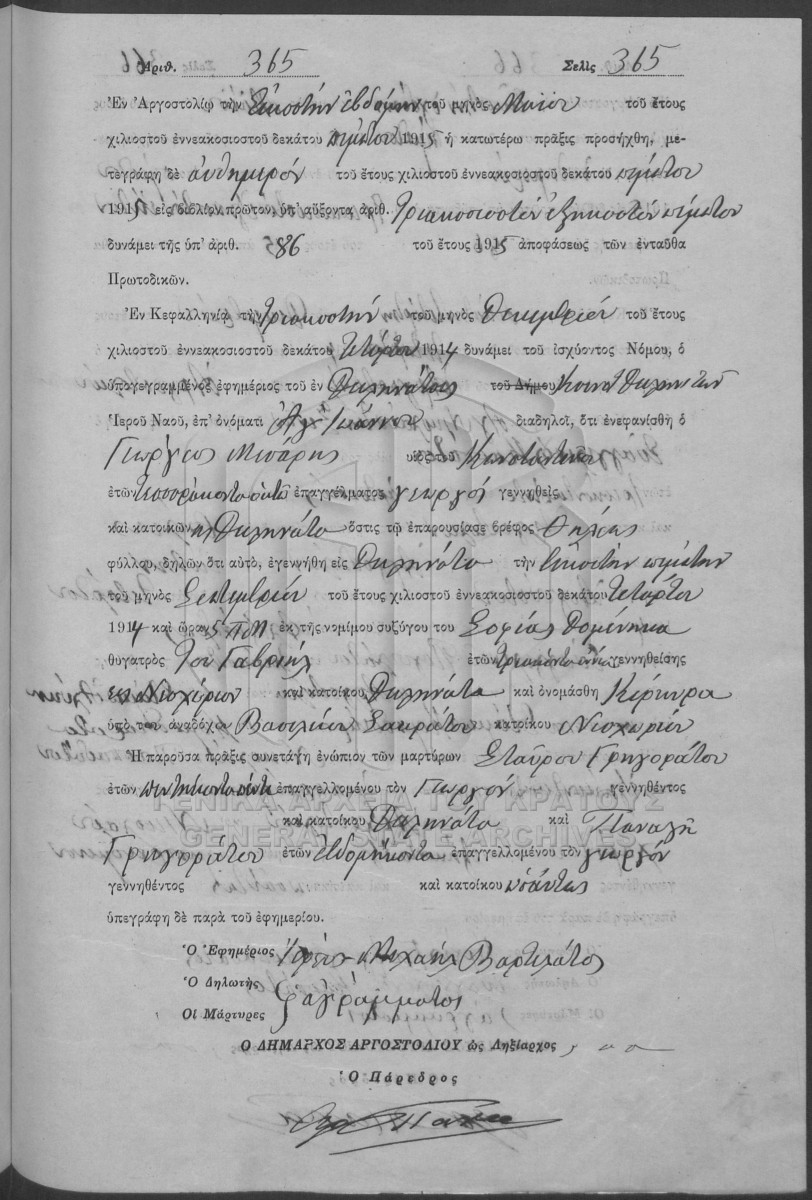 Ἀριθ. 365 Σελὶς 365
Ἐν Ἀργοστολίῳ τὴν Εἰκοστὴν ἑβδόμην τοῦ μηνὸς Μαΐου τοῦ ἔτους
χιλιοστοῦ ἐννεακοσιοστοῦ δεκάτου πέμπτου 1915 ἡ κατωτέρω πρᾶξις προσήχθη, με-
τεγράφη δὲ αὐθημερόν τοῦ ἔτους χιλιοστοῦ ἐννεακοσιοστοῦ δεκάτου πέμπτου
1915 εἰς βιβλίον πρῶτον ὑπ' αὔξοντα ἀριθ. Τριακοσιοστὸν ἑξηκοστὸν πέμπτον
δυνάμει τῆς ὑπ' ἀριθ. 586 τοῦ ἔτους 1915 ἀποφάσεως τῶν ἐνταῦθα
Πρωτοδικῶν.
Ἐν Κεφαλληνίᾳ τὴν Τριακοστὴν τοῦ μηνὸς Δεκεμβρίου τοῦ ἔτους
χιλιοστοῦ ἐννεακοσιοστοῦ δεκάτου Τετάρτου 1914 δυνάμει τοῦ ἰσχύοντος Νόμου, ὁ
ὑπογεγραμμένος ἐφημέριος τοῦ ἐν Διληνάτοις τοῦ Δήμου Κοινοτ Διληνάτων
Ἱεροῦ Ναοῦ, ἐπ' ὀνόματι Ἁγ Ἰωάννου διαδηλοῖ, ὅτι ἐνεφανίσθη ὁ
Γεώργιος Μεσάρης υἱὸς τοῦ Κωνσταντίνου
ἐτῶν τεσσαράκοντα ὀκτὼ ἐπαγγέλματος γεωργοῦ γεννηθεὶς
καὶ κατοικῶν εἰς Διληνάτα ὅστις τῷ ἐπαρουσίασε βρέφος Θήλεος
φύλλου, δηλῶν ὅτι αὐτὸ, ἐγεννήθη εἰς Διληνάτα τὴν Εἰκοστὴν πέμπτην
τοῦ μηνὸς Σεπτεμβρίου τοῦ ἔτους χιλιοστοῦ ἐννεακοσιοστοῦ δεκάτου Τετάρτου
1914 καὶ ὥραν 5 Π.Μ ἐκ τῆς νομίμου συζύγου του Σοφίας Δομενηκα
θυγατρὸς Τοῦ Γαβριὴλ ἐτῶν τριακοντα ἐννέα γεννηθείσης
εἰς Νεοχώριον καὶ κατοίκου Διληνάτα καὶ ὀνομάσθη Κέρκυρα
ὑπὸ τοῦ ἀναδόχου Βασιλείου Σακράτου κατοίκου Νεοχωρίου
Ἡ παροῦσα πρᾶξις συνετάγη ἐνώπιον τῶν μαρτύρων Σταύρου Γρηγοράτου
ἐτῶν πεντήκοντα πέντε ἐπαγγελλομένου τὸν Γεωργὸν γεννηθέντος
καὶ κατοίκου Διληνάτα καὶ Παναγῆ
Γρηγοράτου ἐτῶν ἑβδομήκοντα ἐπαγγελλομένου τὸν γεωργόν
γεννηθέντος καὶ κατοίκου ὡσαύτως
ὑπεγράφη δὲ παρὰ τοῦ ἐφημερίου.
Ὁ Ἐφημέριος Ἱερεὺς Μιχαὴλ Βαρτελάτος
Ὁ Δηλωτὴς ἀγράμματος
Οἱ Μάρτυρες
Ὁ ΔΗΜΑΡΧΟΣ ΑΡΓΟΣΤΟΛΙΟΥ ὡς Ληξίαρχος
Ὁ Πάρεδρος
ΓΕΝΙΚΑ ΑΡΧΕΙΑ ΤΟΥ ΚΡΑΤΟΥΣ
GENERAL STATE ARCHIVES